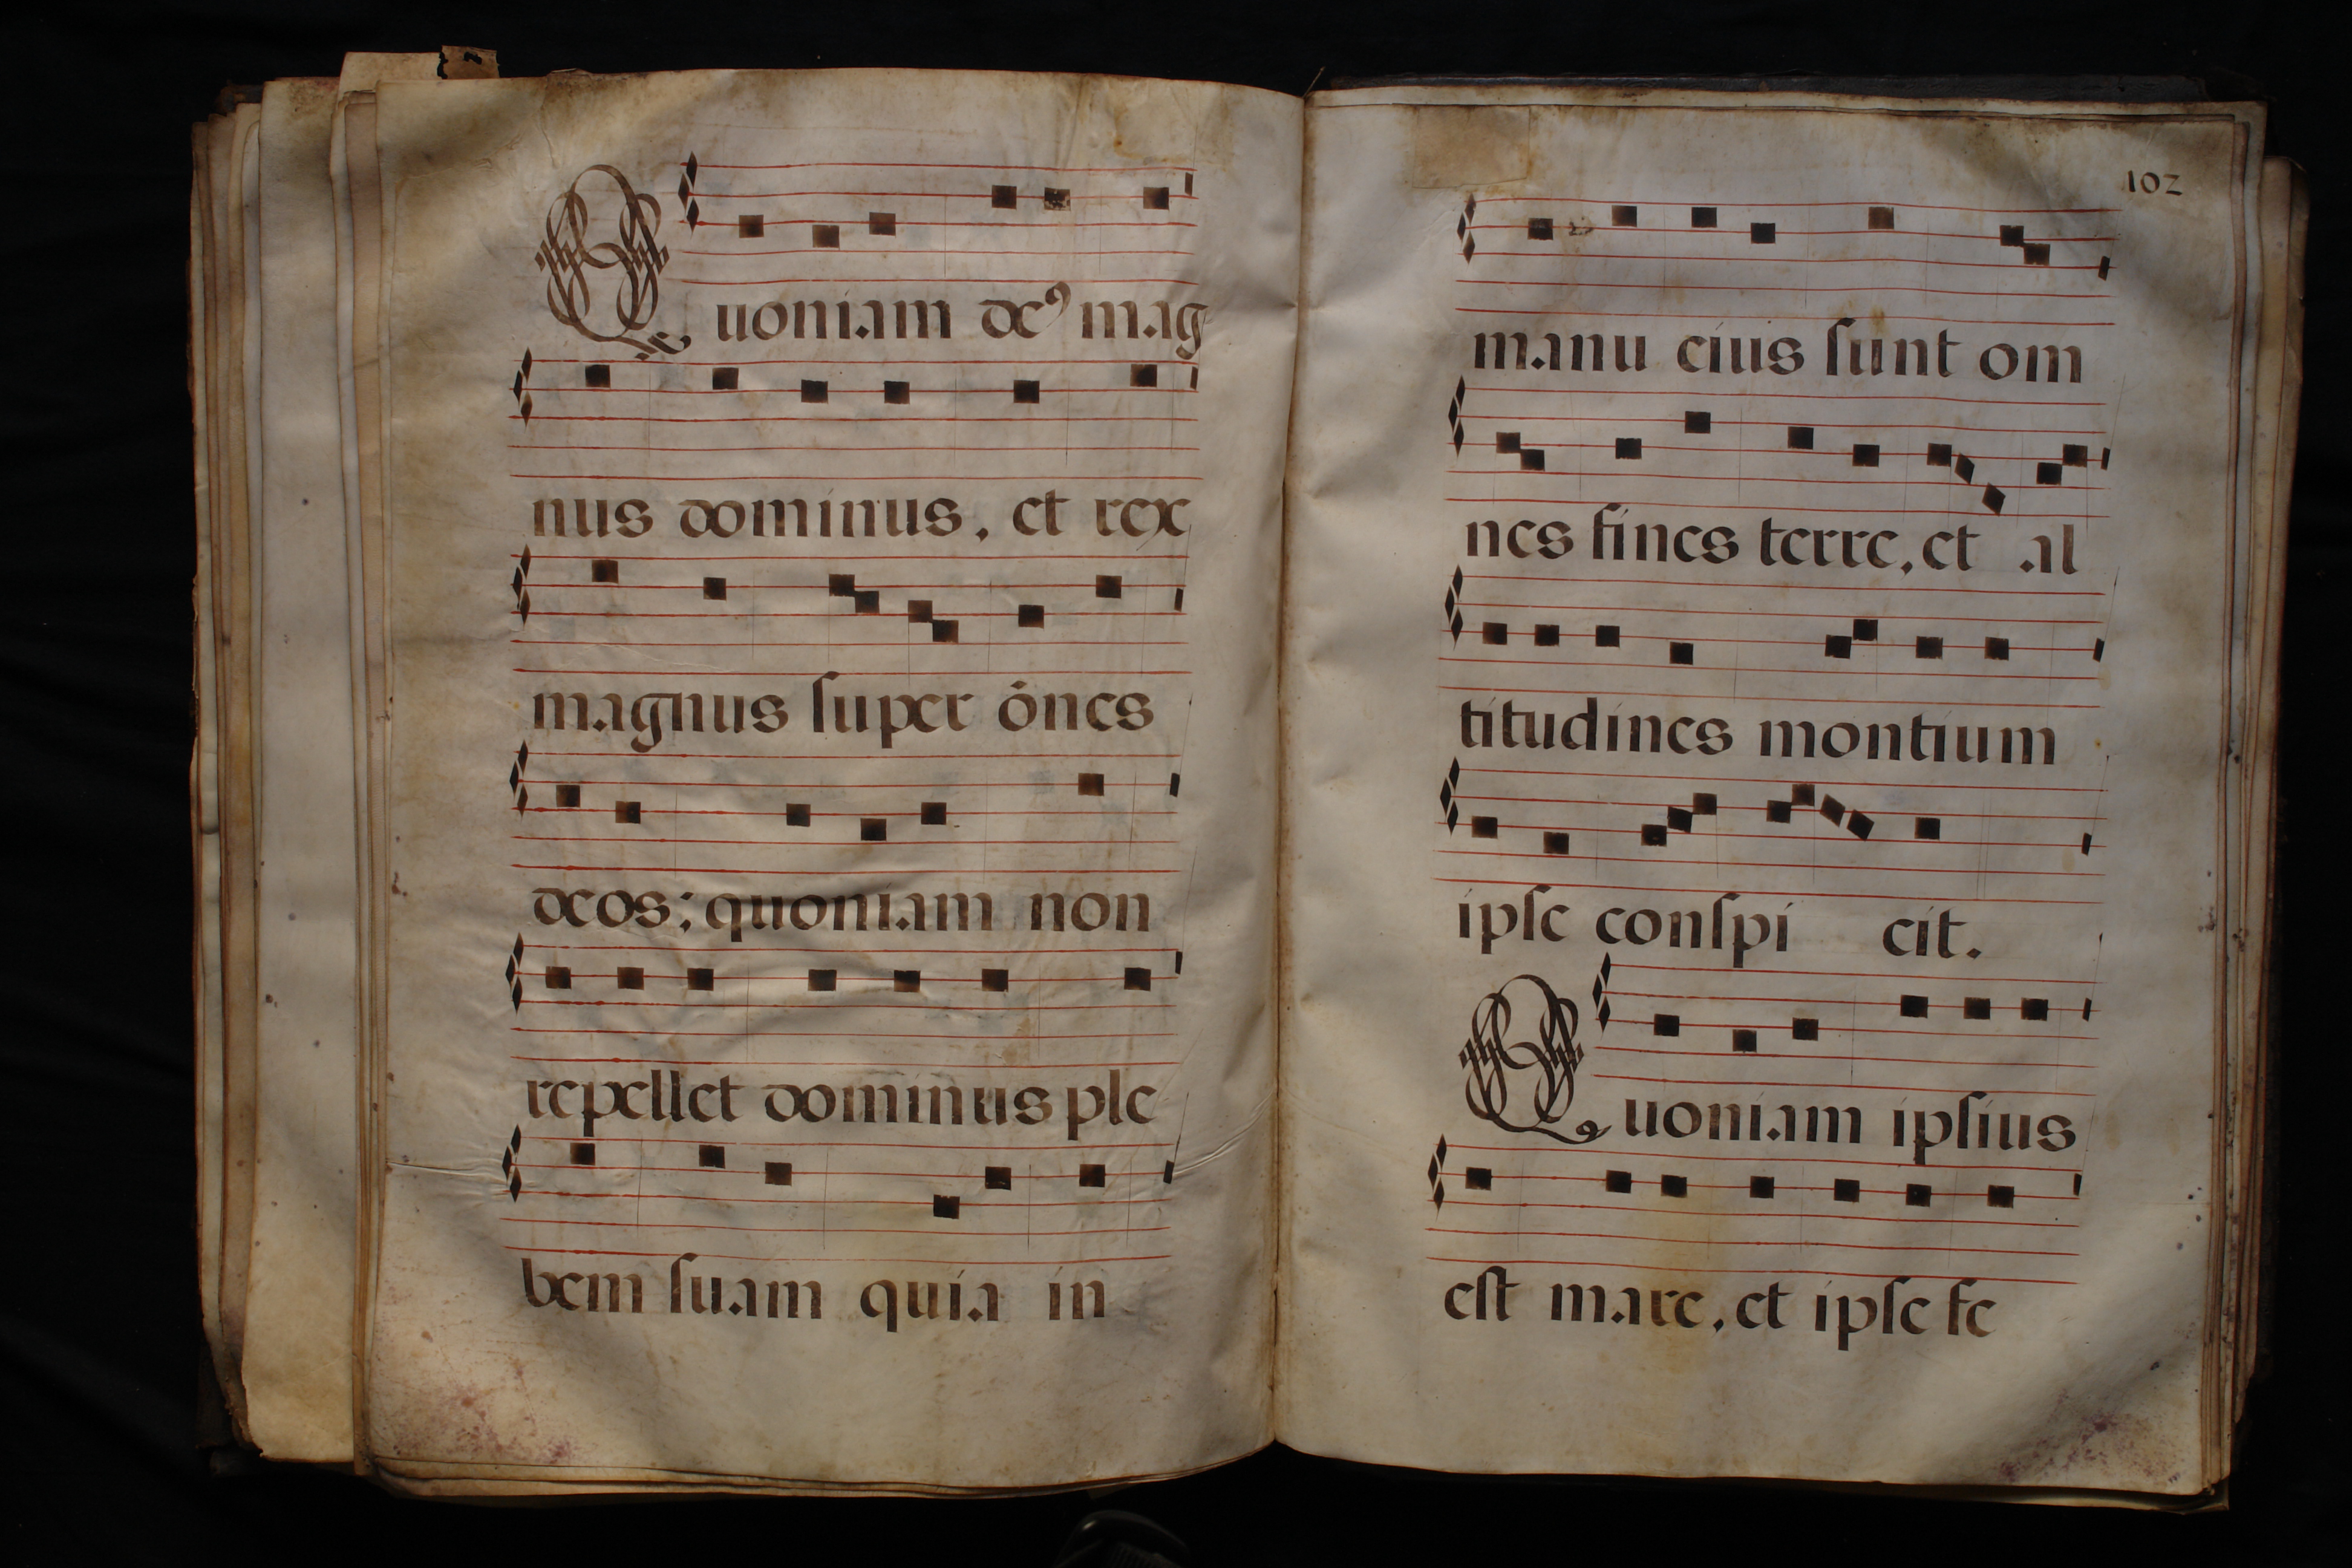 Quoniam de⁹ mag
nus dominus, et rex
magnus ſuper ōnes
deos; quoniam non
repellet dominus ple
bem ſuam quia in
102
manu eius ſunt om
nes fines terre, et al
titudines montium
ipſe conſpi cit.
Quoniam ipſius
eſt mare, et ipſe fe